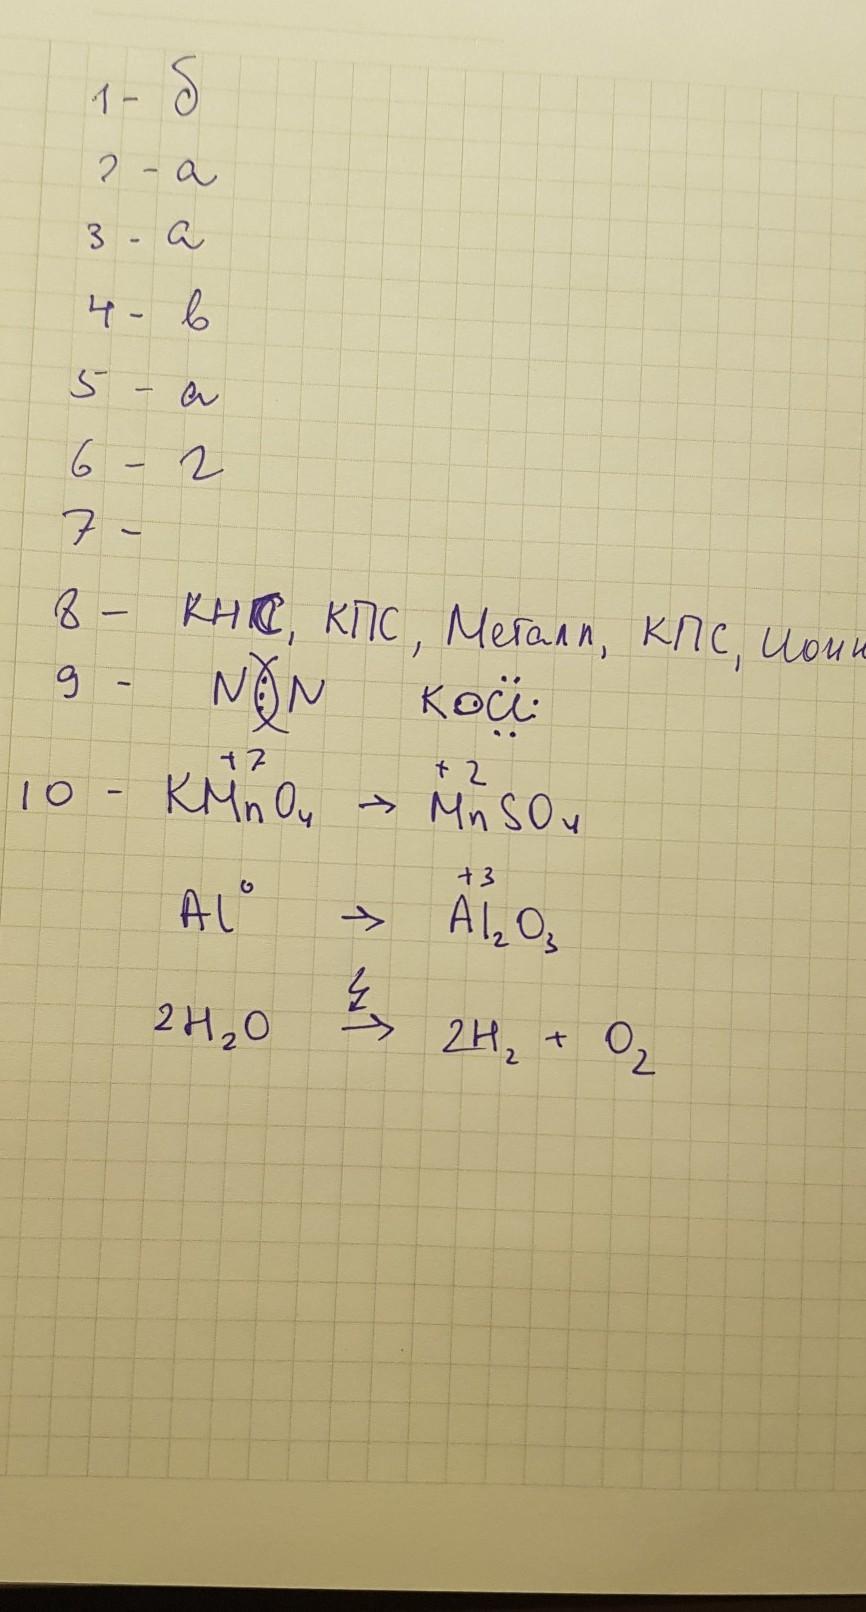 1 - б
2 - а
3 - а
4 - в
5 - а
6 - г
7 -
8 - КНС, КПС, Металл, КПС, Ионн
9 - N⋮N K:Cl:
10 - KMn⁺⁷O₄ → Mn⁺²SO₄
Al⁰ → Al₂⁺³O₃
2H₂O → 2H₂ + O₂